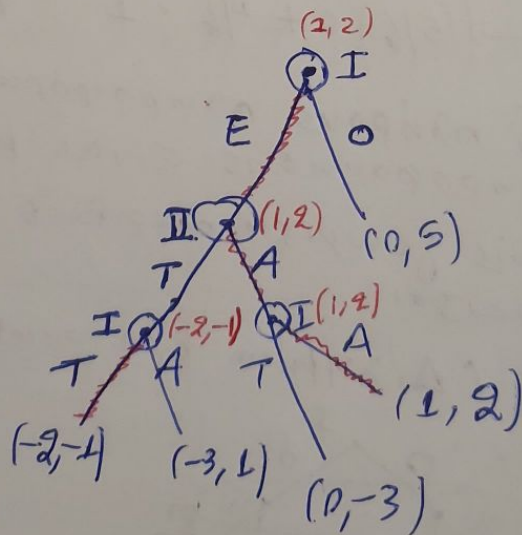 (1,2)
I
E
O
II
(1,2)
(0,5)
T
A
I
(-2,-1)
I
(1,2)
T
A
T
A
(-2,-1)
(-3,1)
(0,-3)
(1,2)